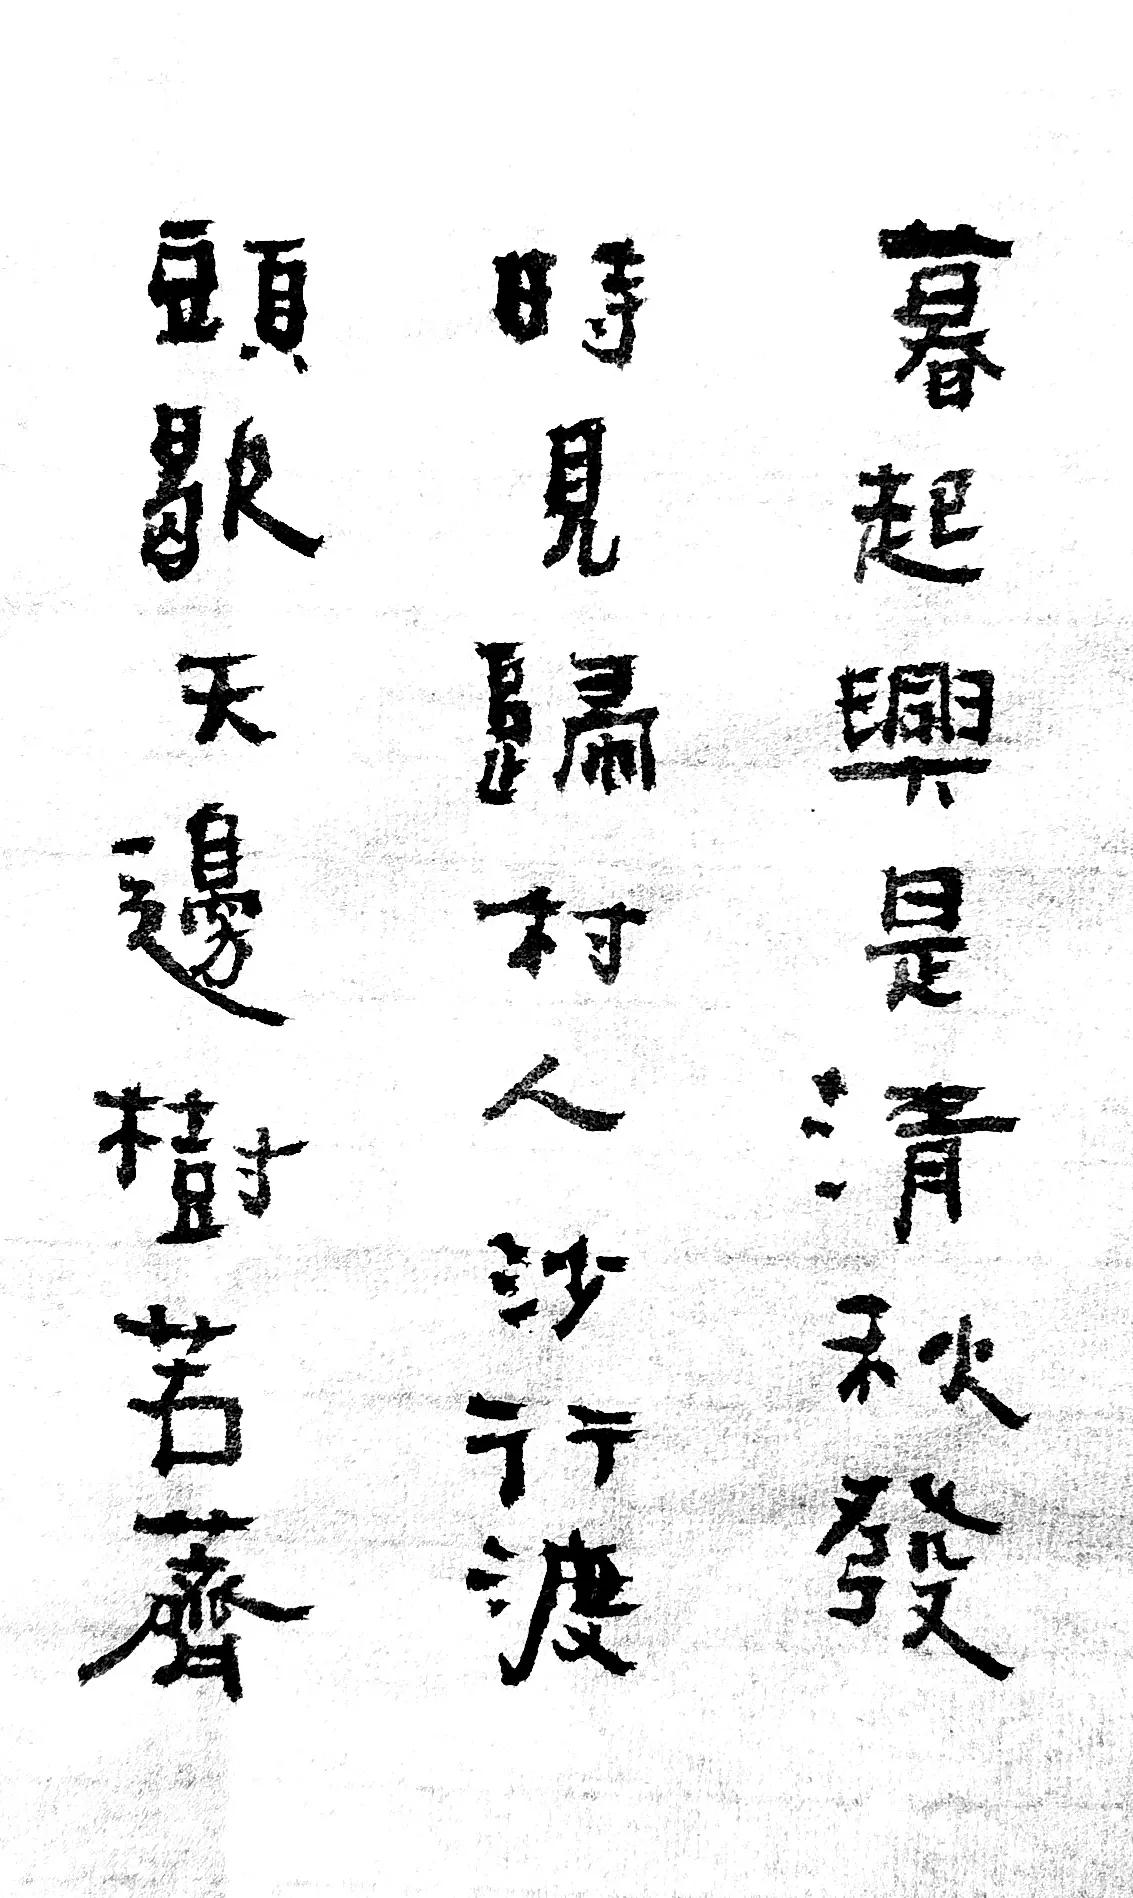 暮起興是清秋發
時見歸村人沙行渡
頭歇天邊樹若薺